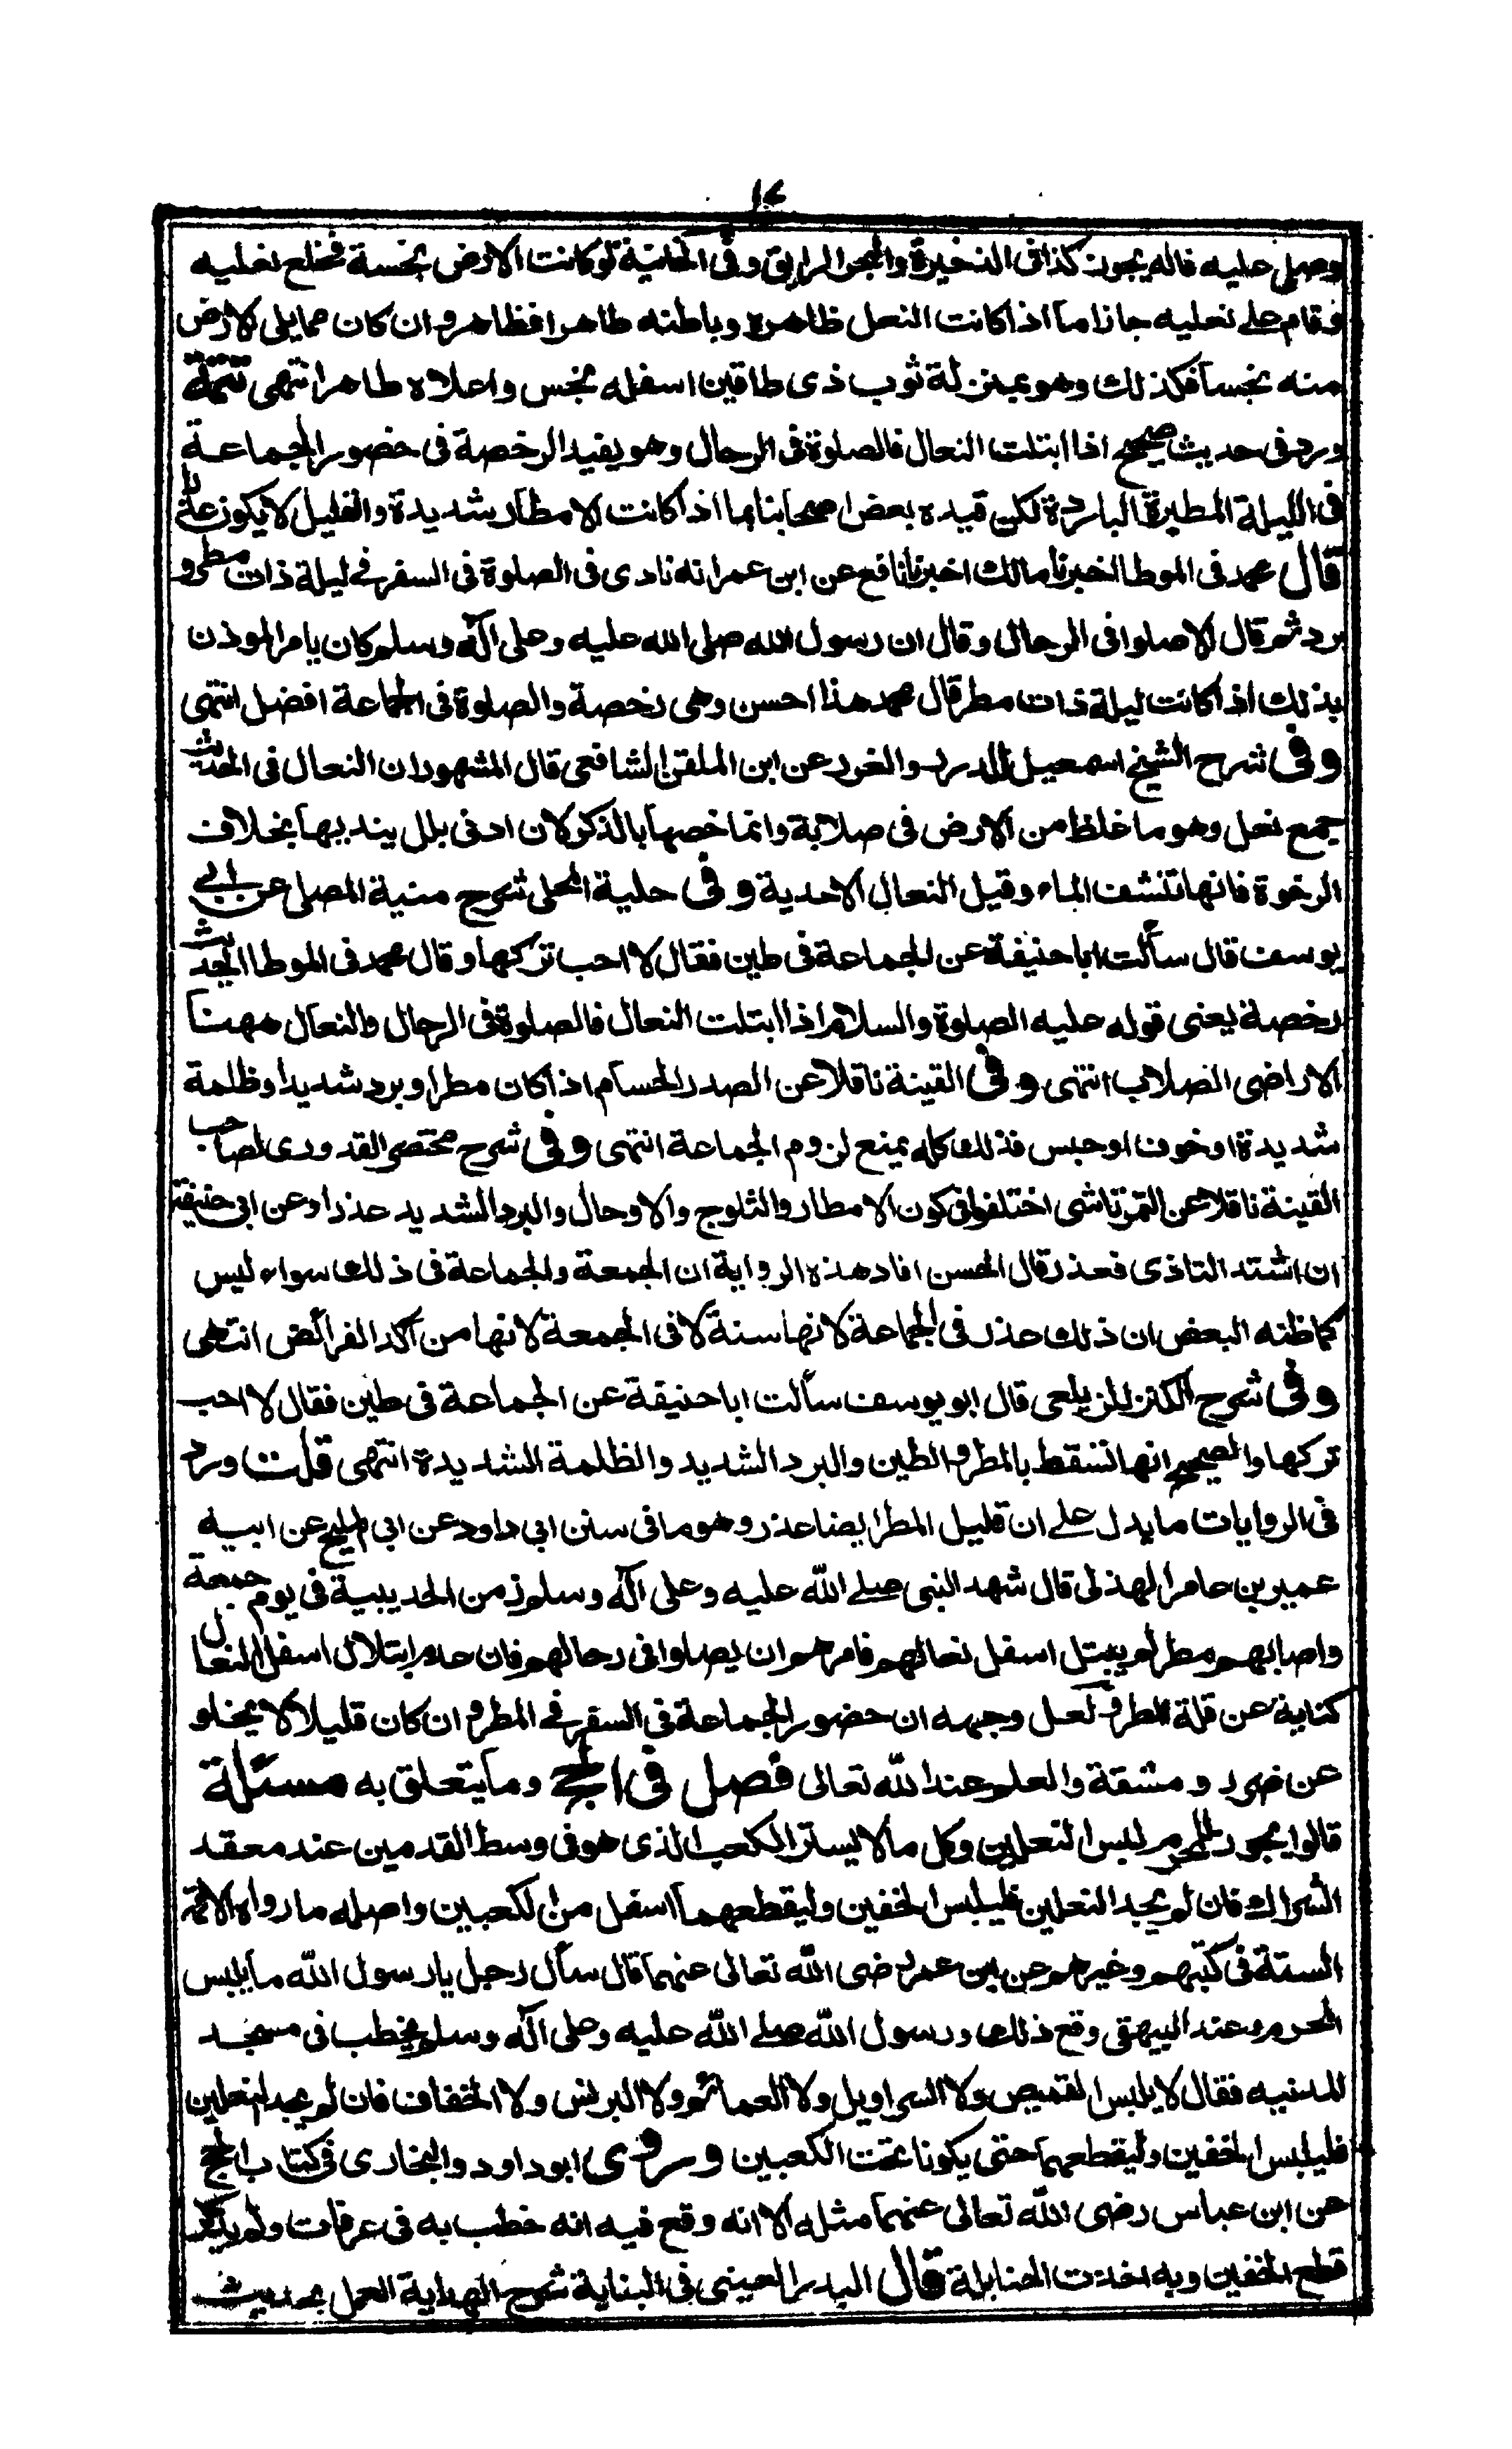 ١٤
وصلى عليه فانه يجوز كذا فى الذخيرة والبحر الرايق وفى الخانية لو كانت الارض نجسة فخلع نعليه
وقام على نعليه جاز اما اذا كانت النعل ظاهره وباطنه طاهرا فظاهر وان كان مما يلى الارض
منه نجسا فكذلك وهو بمنزلة ثوب ذى طاقين اسفله نجس واعلاه طاهر انتهى تتمة
ورد فى حديث صحيح اذا ابتلت النعال فالصلوة فى الرحال وهو يفيد الرخصة فى حضور الجماعة
فى الليلة المطيرة الباردة لكن قيده بعض اصحابنا بما اذا كانت الامطار شديدة والقليل لا يكون عذرا
قال محمد فى الموطا اخبرنا مالك اخبرنا نافع عن ابن عمر انه نادى فى الصلوة فى السفر فى ليلة ذات مطر و
برد ثم قال الا صلوا فى الرحال وقال ان رسول الله صلى الله عليه وعلى آله وسلم كان يامر الموذن
بذلك اذا كانت ليلة ذات مطر قال محمد هذا احسن وهى رخصة والصلوة فى الجماعة افضل انتهى
وفى شرح الشيخ اسمعيل للدرر والغرر عن ابن الملقن الشافعى قال المشهور ان النعال فى الحديث
جمع نعل وهو ما غلظ من الارض فى صلابة وانما خصها بالذكر لان ادنى بلل ينديها بخلاف
الرخوة فانها تنشف الماء وقيل النعال الاحدية وفى حلية المحلى شرح منية المصلى عن ابى
يوسف قال سألت ابا حنيفة عن الجماعة فى طين فقال لا احب تركها وقال محمد فى الموطا الحديث
رخصة يعنى قوله عليه الصلوة والسلام اذا ابتلت النعال فالصلوة فى الرحال والنعال ههنا
الاراضى الصلاب انتهى وفى القينة ناقلا عن الصدر الحسام اذا كان مطر او برد شديد او ظلمة
شديدة او خوف او حبس فذلك كله يمنع لزوم الجماعة انتهى وفى شرح مختصر القدورى لصاحب
القينة ناقلا عن التمرتاشى اختلفوا فى كون الامطار والثلوج والاوحال والبرد الشديد عذرا وعن ابى حنيفة
ان اشتد التاذى فعذر قال الحسن افاد هذه الرواية ان الجمعة والجماعة فى ذلك سواء ليس
كما ظنه البعض ان ذلك عذر فى الجماعة لانها سنة لا فى الجمعة لانها من آكد الفرائض انتهى
وفى شرح الكنز للزيلعى قال ابو يوسف سألت ابا حنيفة عن الجماعة فى طين فقال لا احب
تركها والصحيح انها تسقط بالمطر والطين والبرد الشديد والظلمة الشديدة انتهى قلت ورد
فى الروايات ما يدل على ان قليل المطر ايضا عذر وهو ما فى سنن ابى داود عن ابى المليح عن ابيه
عمير بن عامر الهذلى قال شهد النبى صلى الله عليه وعلى آله وسلم زمن الحديبية فى يوم جمعة
واصابهم مطر لم يبتل اسفل نعالهم فامرهم ان يصلوا فى رحالهم فان عدم ابتلال اسفل النعال
كناية عن قلة المطر ولعل وجهه ان حضور الجماعة فى السفر فى المطر وان كان قليلا لا يخلو
عن ضرر ومشقة والعلم عند الله تعالى فصل فى الحج وما يتعلق به مسئلة
قالوا يجوز للمحرم لبس النعلين وكل ما لا يستر الكعب الذى هو فى وسط القدمين عند معقد
الشراك فان لم يجد النعلين فليلبس الخفين وليقطعهما اسفل من الكعبين واصله ما رواه الائمة
الستة فى كتبهم وغيرهم عن ابن عمر رضى الله تعالى عنهما قال سأل رجل يا رسول الله ما يلبس
المحرم وعند البيهقى وقع ذلك ورسول الله صلى الله عليه وعلى آله وسلم يخطب فى مسجد
المدنيه فقال لا يلبس القميص ولا السراويل ولا العمائم ولا البرنس ولا الخفاف فان لم يجد النعلين
فليلبس الخفين وليقطعهما حتى يكونا تحت الكعبين وروى ابو داود والبخارى فى كتاب الحج
عن ابن عباس رضى الله تعالى عنهما مثله الا انه وقع فيه انه خطب به فى عرفات ولم يذكر
قطع الخفين وبه اخذت الحنابلة قال البدر العينى فى البناية شرح الهداية العمل بحديث